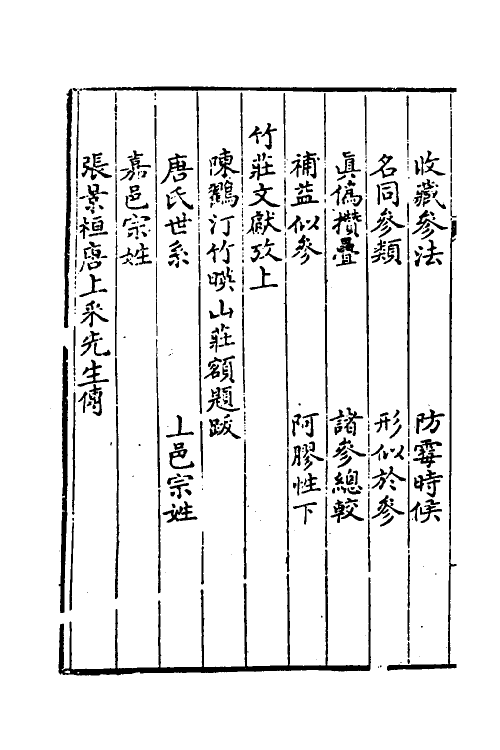 收藏參法　防霉時候
名同參類　形似於參
眞偽攢疊　諸參總較
補益似參　阿膠性下
竹莊文獻攷上
陳鷄汀竹暎山莊額題跋
唐氏世系　上邑宗姓
嘉邑宗姓
張景桓唐上釆先生傳